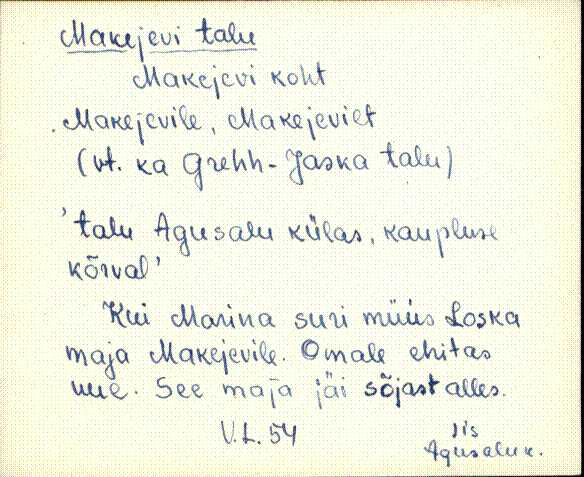 Makejevi talu
Makejevi koht
Makejevile, Makejeviet
(vt. ka Grehh-Jaska talu)
'talu Agusalu külas, kaupluse
kõrval'
Kui Marina suri müüs Loska
maja Makejevile. Omale ehitas
uue. See maja jäi sõjast alles.
V.L. 54
Iis
Agusalu k.